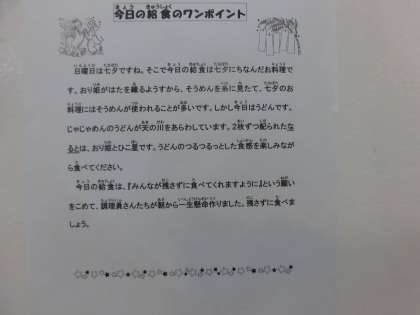 今日の給食のワンポイント
日曜日は七夕ですね。そこで今日の給食は七夕にちなんだお料理で
す。おり姫がはたを織るようすから、そうめんを糸に見たて、七夕のお
料理にはそうめんが使われることが多いです。しかし今日はうどんです。
じゃじゃめんのうどんが天の川をあらわしています。2枚ずつ配られたな
るとは、おり姫とひこ星です。うどんのつるつるっとした食感を楽しみなが
ら食べてください。
今日の給食は、『みんなが残さずに食べてくれますように』という願い
をこめて、調理員さんたちが朝から一生懸命作りました。残さずに食べま
しょう。